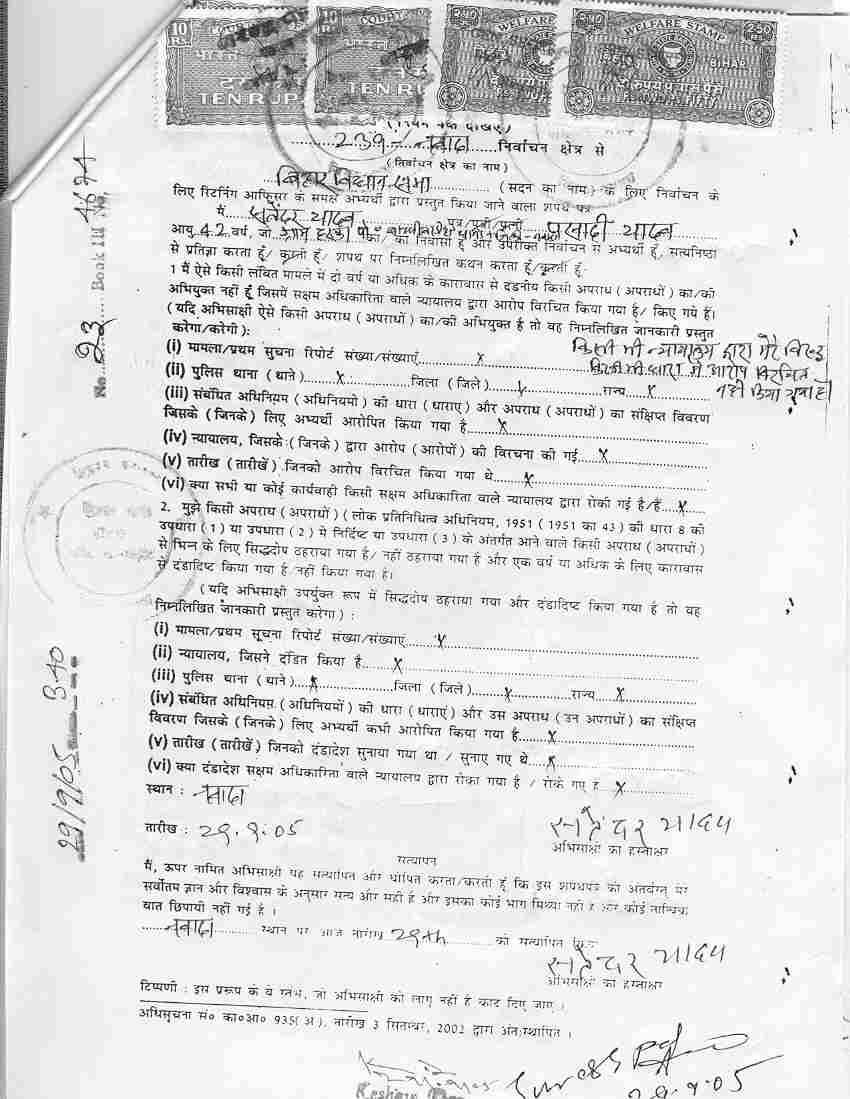 10 Rs.
COURT
10
TEN RUP
TEN RU
WELFARE
WELFARE STAMP
BIHAR
239 नवादा निर्वाचन क्षेत्र से
(निर्वाचन क्षेत्र का नाम)
बिहार विधान सभा (सदन का नाम) के लिए निर्वाचन के
लिए रिटर्निंग आफिसर के समक्ष अभ्यर्थी द्वारा प्रस्तुत किया जाने वाला शपथ पत्र
मैं यादव पुत्र/पुत्री/पत्नी प्रसादी यादव
आयु 42 वर्ष, जो का/की निवासी हूँ और उपरोक्त निर्वाचन से अभ्यर्थी हूँ, सत्यनिष्ठा
से प्रतिज्ञा करता हूँ/ करती हूँ/ शपथ पर निम्नलिखित कथन करता हूँ/करती हूँ:
1 मैं ऐसे किसी लंबित मामले में दो वर्ष या अधिक के कारावास से दंडनीय किसी अपराध (अपराधों) का/की
अभियुक्त नहीं हूँ जिसमें सक्षम अधिकारिता वाले न्यायालय द्वारा आरोप विरचित किया गया है/ किए गये हैं।
(यदि अभिसाक्षी ऐसे किसी अपराध (अपराधों) का/की अभियुक्त है तो वह निम्नलिखित जानकारी प्रस्तुत
करेगा/करेगी):
(i) मामला/प्रथम सुचना रिपोर्ट संख्या/संख्याएं x
किसी भी न्यायालय द्वारा मेरे विरुद्ध
किसी भी धारा में आरोप विरचित
नहीं किया गया है
(ii) पुलिस थाना (थाने) x जिला (जिले) x राज्य x
(iii) संबंधित अधिनियम (अधिनियमों) की धारा (धाराए) और अपराध (अपराधों) का संक्षिप्त विवरण
जिसके (जिनके) लिए अभ्यर्थी आरोपित किया गया है x
(iv) न्यायालय, जिसके (जिनके) द्वारा आरोप (आरोपों) की विरचना की गई x
(v) तारीख (तारीखें) जिनको आरोप विरचित किया गया थे x
(vi) क्या सभी या कोई कार्यवाही किसी सक्षम अधिकारिता वाले न्यायालय द्वारा रोकी गई है/हैं x
2. मुझे किसी अपराध (अपराधों) (लोक प्रतिनिधित्व अधिनियम, 1951 (1951 का 43) की धारा 8 की
उपधारा (1) या उपधारा (2) में निर्दिष्ट या उपधारा (3) के अंतर्गत आने वाले किसी अपराध (अपराधों)
से भिन्न के लिए सिद्धदोष ठहराया गया है/ नहीं ठहराया गया है और एक वर्ष या अधिक के लिए कारावास
से दंडादिष्ट किया गया है/नहीं किया गया है।
(यदि अभिसाक्षी उपर्युक्त रूप में सिद्धदोष ठहराया गया और दंडादिष्ट किया गया है तो वह
निम्नलिखित जानकारी प्रस्तुत करेगा):
(i) मामला/प्रथम सूचना रिपोर्ट संख्या/संख्याएं x
(ii) न्यायालय, जिसने दंडित किया है x
(iii) पुलिस थाना (थाने) x जिला (जिले) x राज्य x
(iv) संबंधित अधिनियम (अधिनियमों) की धारा (धाराएं) और उस अपराध (उन अपराधों) का संक्षिप्त
विवरण जिसके (जिनके) लिए अभ्यर्थी कभी आरोपित किया गया है x
(v) तारीख (तारीखें) जिनको दंडादेश सुनाया गया था / सुनाए गए थे x
(vi) क्या दंडादेश सक्षम अधिकारिता वाले न्यायालय द्वारा रोका गया है / रोके गए है x
स्थान : नवादा
तारीख : 29.9.05
यादव
अभिसाक्षी का हस्ताक्षर
सत्यापन
मैं, ऊपर नामित अभिसाक्षी यह सत्यापित और घोषित करता/करती हूँ कि इस शपथपत्र की अंतर्वस्तु मेरे
सर्वोतम ज्ञान और विश्वास के अनुसार सत्य और सही है और इसका कोई भाग मिथ्या नहीं है और कोई तात्विक
बात छिपायी नहीं गई है।
नवादा स्थान पर आज तारीख 29th को सत्यापित
यादव
अभिसाक्षी का हस्ताक्षर
टिप्पणी : इस प्ररूप के वे स्तंभ, जो अभिसाक्षी को लागू नहीं है काट दिए जाए।
अधिसूचना सं० का०आ० 935(अ), तारीख 3 सितम्बर, 2002 द्वारा अंतःस्थापित।
29.9.05
No. 23 Book III
29/9/05